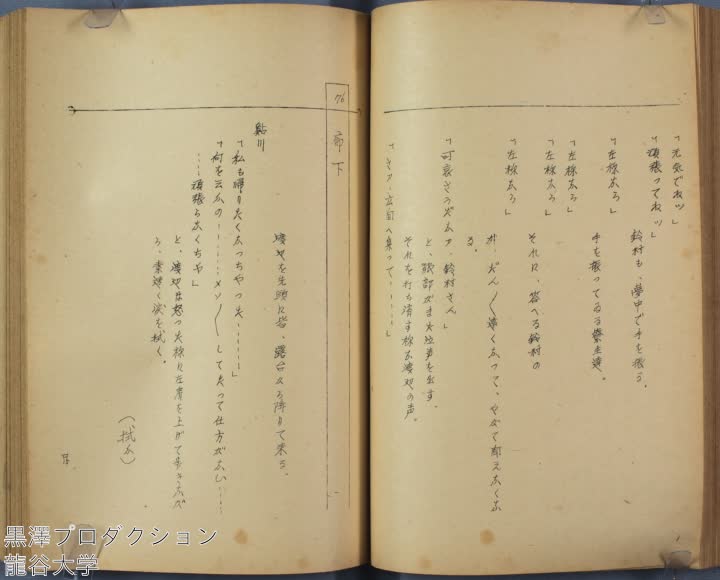 「元気でねッ」
「頑張ってねッ」
鈴村も、夢中で手を振る。
手を振ってゐる寮生達。
「左様なら」
「左様なら」
「左様なら」
それに、答へる鈴村の
「左様なら」
が、だん／＼遠くなって、やがて聞えなくな
る。
「可哀さうだなア、鈴村さん」
と、磯部がまた泣声を出す。
それを打ち消す様な渡辺の声。
「さア、玄関へ集って‥‥‥」
76 廊下
渡辺を先頭に皆、露台から降りて来る。
鮎川
「私も帰りたくなっちやつた‥‥‥」
「何を云ふの‥‥‥メソ／＼してたって仕方がない‥‥
‥‥頑張らなくちや」
と、渡辺は怒った様に左肩を上げて歩きなが
ら、素速く涙を拭く。
（拭ふ）
黒澤プロダクション
龍谷大学